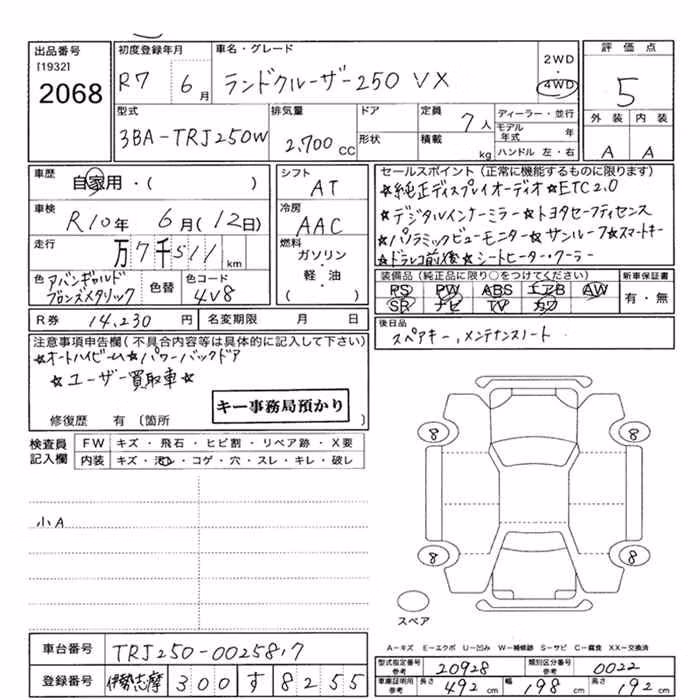 出品番号
[1932]
2068
初度登録年月
R7 6月
車名・グレード
ランドクルーザー250 VX
2WD
・
4WD
評価点
5
外装 内装
A A
型式
3BA-TRJ250W
排気量
2,700 CC
ドア
形状
定員 7人
積載 kg
ディーラー・並行
モデル年式 年
ハンドル 左・右
車歴
自家用・( )
車検
R10年 6月(12日)
走行
万7千511 km
色 アバンギャルドブロンズメタリック
色替
色コード
4V8
シフト
AT
冷房
AAC
燃料
ガソリン
軽・油
( )
セールスポイント(正常に機能するものに限ります)
☆純正ディスプレイオーディオ☆ETC2.0
☆デジタルインナーミラー☆トヨタセーフティセンス
☆パノラミックビューモニター☆サンルーフ☆スマートキー
☆ドラレコ前後☆シートヒーター・クーラー
装備品(純正品に限り○をつけてください)
PS PW ABS エアB AW
SR ナビ TV カワ
新車保証書
有・無
R券 14,230 円
名変期限 月 日
後日品
スペアキー,メンテナンスノート
注意事項申告欄(不具合内容等は具体的に記入して下さい)
☆オートハイビーム☆パワーバックドア
☆ユーザー買取車☆
キー事務局預かり
修復歴 有 〔箇所 〕
検査員記入欄
FW キズ・飛石・ヒビ割・リペア跡・X要
内装 キズ・汚レ・コゲ・穴・スレ・キレ・破レ
小A
8 8
8 8
スペア
A-キズ E-エクボ U-凹み W-補修跡 S-サビ C-腐食 XX-交換済
車台番号 TRJ250-0025817
登録番号 伊勢志摩 300 す 8255
型式指定番号 参考 20928
類別区分番号 参考 0022
車庫証明用 参考 長さ 492 cm 幅 198 cm 高さ 192 cm